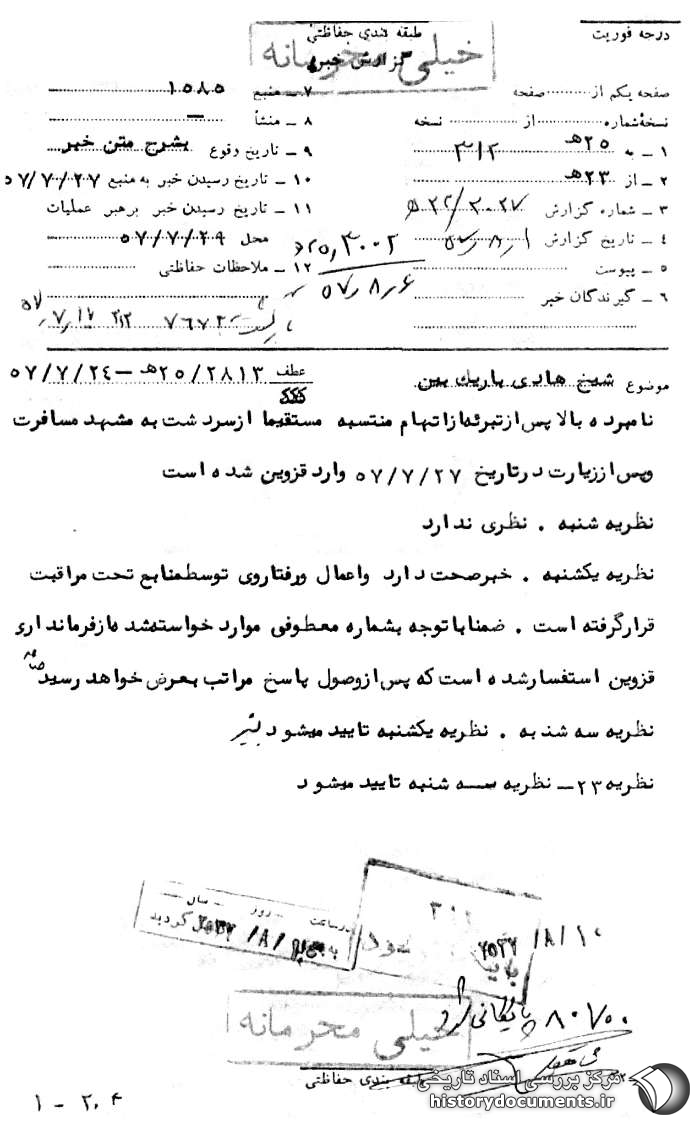 درجه فوریت
طبقه بندی حفاظتی
خیلی محرمانه
گزارش خبر
صفحه یکم از صفحه
نسخهٔ شماره از نسخه
۱ – به ۲۵هـ ۳۱۲
۲ – از ۲۳هـ
۳ – شماره گزارش
۴ – تاریخ گزارش
۵ – پیوست
۶ – گیرندگان خبر
۷ – منبع ۱۵۸۵
۸ – منشأ –
۹ – تاریخ وقوع بشرح متن خبر
۱۰ – تاریخ رسیدن خبر به منبع ۵۷/۷/۲۷
۱۱ – تاریخ رسیدن خبر برهبر عملیات
محل ۵۷/۷/۲۹
۱۲ – ملاحظات حفاظتی
۵۷٫۸٫۶
موضوع شیخ هادی باریک بین
عطف ۲۵/۲۸۱۳هـ – ۵۷/۷/۲۴
نامبرده بالا پس از تبرئه از اتهام منتسبه مستقیما از سردشت به مشهد مسافرت
و پس از زیارت در تاریخ ۵۷/۷/۲۷ وارد قزوین شده است
نظریه شنبه . نظری ندارد
نظریه یکشنبه . خبر صحت دارد و اعمال و رفتار وی توسط منابع تحت مراقبت
قرار گرفته است . ضمنا با توجه بشماره معطوفی موارد خواسته شده از فرمانداری
قزوین استفسار شده است که پس از وصول پاسخ مراتب بعرض خواهد رسید
نظریه سه شنبه . نظریه یکشنبه تایید میشود
نظریه ۲۳ – نظریه سه شنبه تایید میشود
۳۱۲
در ساعت روز سال
۸/۱۰
بایگانی شود ۸۰۷۰۰
خیلی محرمانه
طبقه بندی حفاظتی
مرکز بررسی اسناد تاریخی
historydocuments.ir
۱ – ۲۰۴